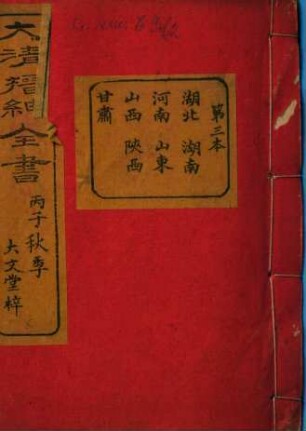 大清搢紳全書
丙子秋季
大文堂梓
第三本
湖北 湖南
河南 山東
山西 陝西
甘肅